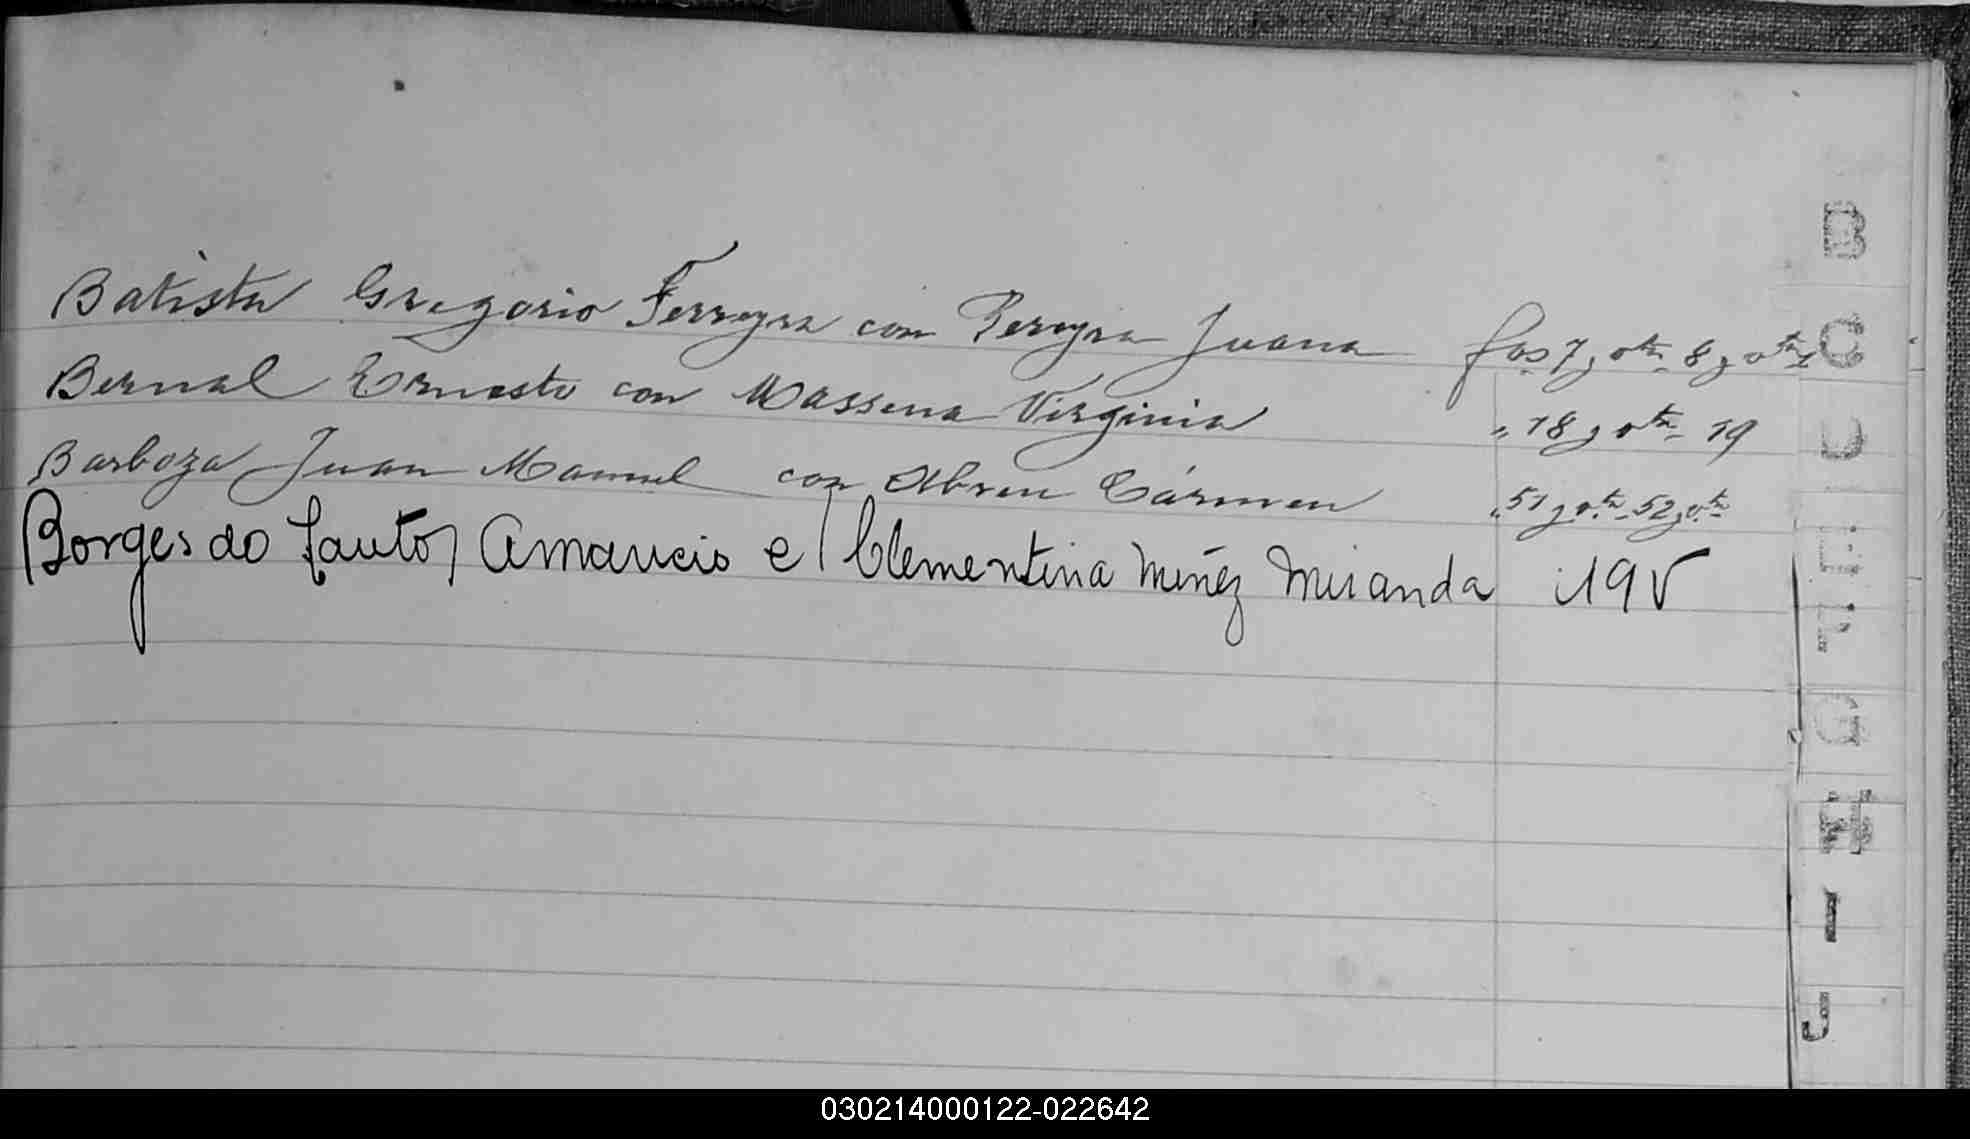 Batista Gregorio Ferreyra con Pereyra Juana fos 7 y vta 8 y vta
Bernal Ernesto con Massena Virginia " 18 y vta 19
Barboza Juan Manuel con Abreu Cármen " 51 y vta 52 y vta
Borges do Santos Amancio e Clementina Miñez Miranda 19v
B
C
D
E
F
G
H
I
J
030214000122-022642